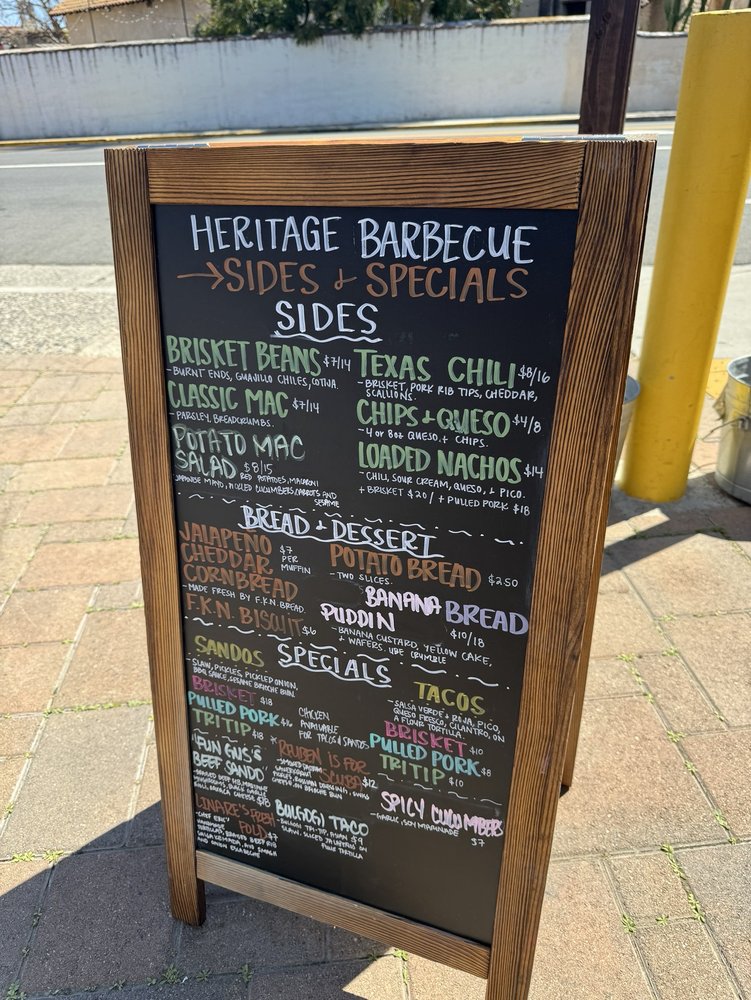 HERITAGE BARBECUE
→SIDES & SPECIALS
SIDES
BRISKET BEANS $7/14
-BURNT ENDS, GUAJILLO CHILES, COTIJA.
CLASSIC MAC $7/14
-PARSLEY, BREADCRUMBS.
POTATO MAC
SALAD $8/15
RED POTATOES, MACARONI
MAYO, PICKLED CUCUMBERS, CARROTS AND
SESAME
TEXAS CHILI $8/16
-BRISKET, PORK RIB TIPS, CHEDDAR,
SCALLIONS.
CHIPS & QUESO $4/8
-4 OR 8oz QUESO & CHIPS.
LOADED NACHOS $14
-CHILI, SOUR CREAM, QUESO, & PICO.
+ BRISKET $20 / + PULLED PORK $18
BREAD & DESSERT
JALAPEÑO
CHEDDAR
CORNBREAD
$7
PER
MUFFIN
-MADE FRESH BY F.K.N. BREAD.
F.K.N. BISCUIT $6
POTATO BREAD $2.50
-TWO SLICES.
BANANA BREAD
PUDDIN $10/18
-BANANA CUSTARD, YELLOW CAKE,
& WAFERS. CRUMBLE
SPECIALS
SANDOS
SLAW, PICKLES, PICKLED ONION,
BBQ SAUCE, SESAME BRIOCHE BUN.
BRISKET $18
PULLED PORK
TRI TIP
CHICKEN
AVAILABLE
FOR TACOS & SANDOS
TACOS
-SALSA VERDE & ROJA, PICO,
QUESO FRESCO, CILANTRO, ON
A FLOUR TORTILLA.
BRISKET $10
PULLED PORK $8
TRI TIP $10
"FUN GUS &
BEEF SANDO"
REUBEN IS FOR
SCUBA $12
LINARE'S FRESH
FOLD $7
BULGOGI TACO
-BULGOGI TRI-TIP, ASIAN $9
SLAW, SLICED JALAPEÑO ON
TORTILLA
SPICY CUCUMBERS
-GARLIC, SOY MARINADE
$7